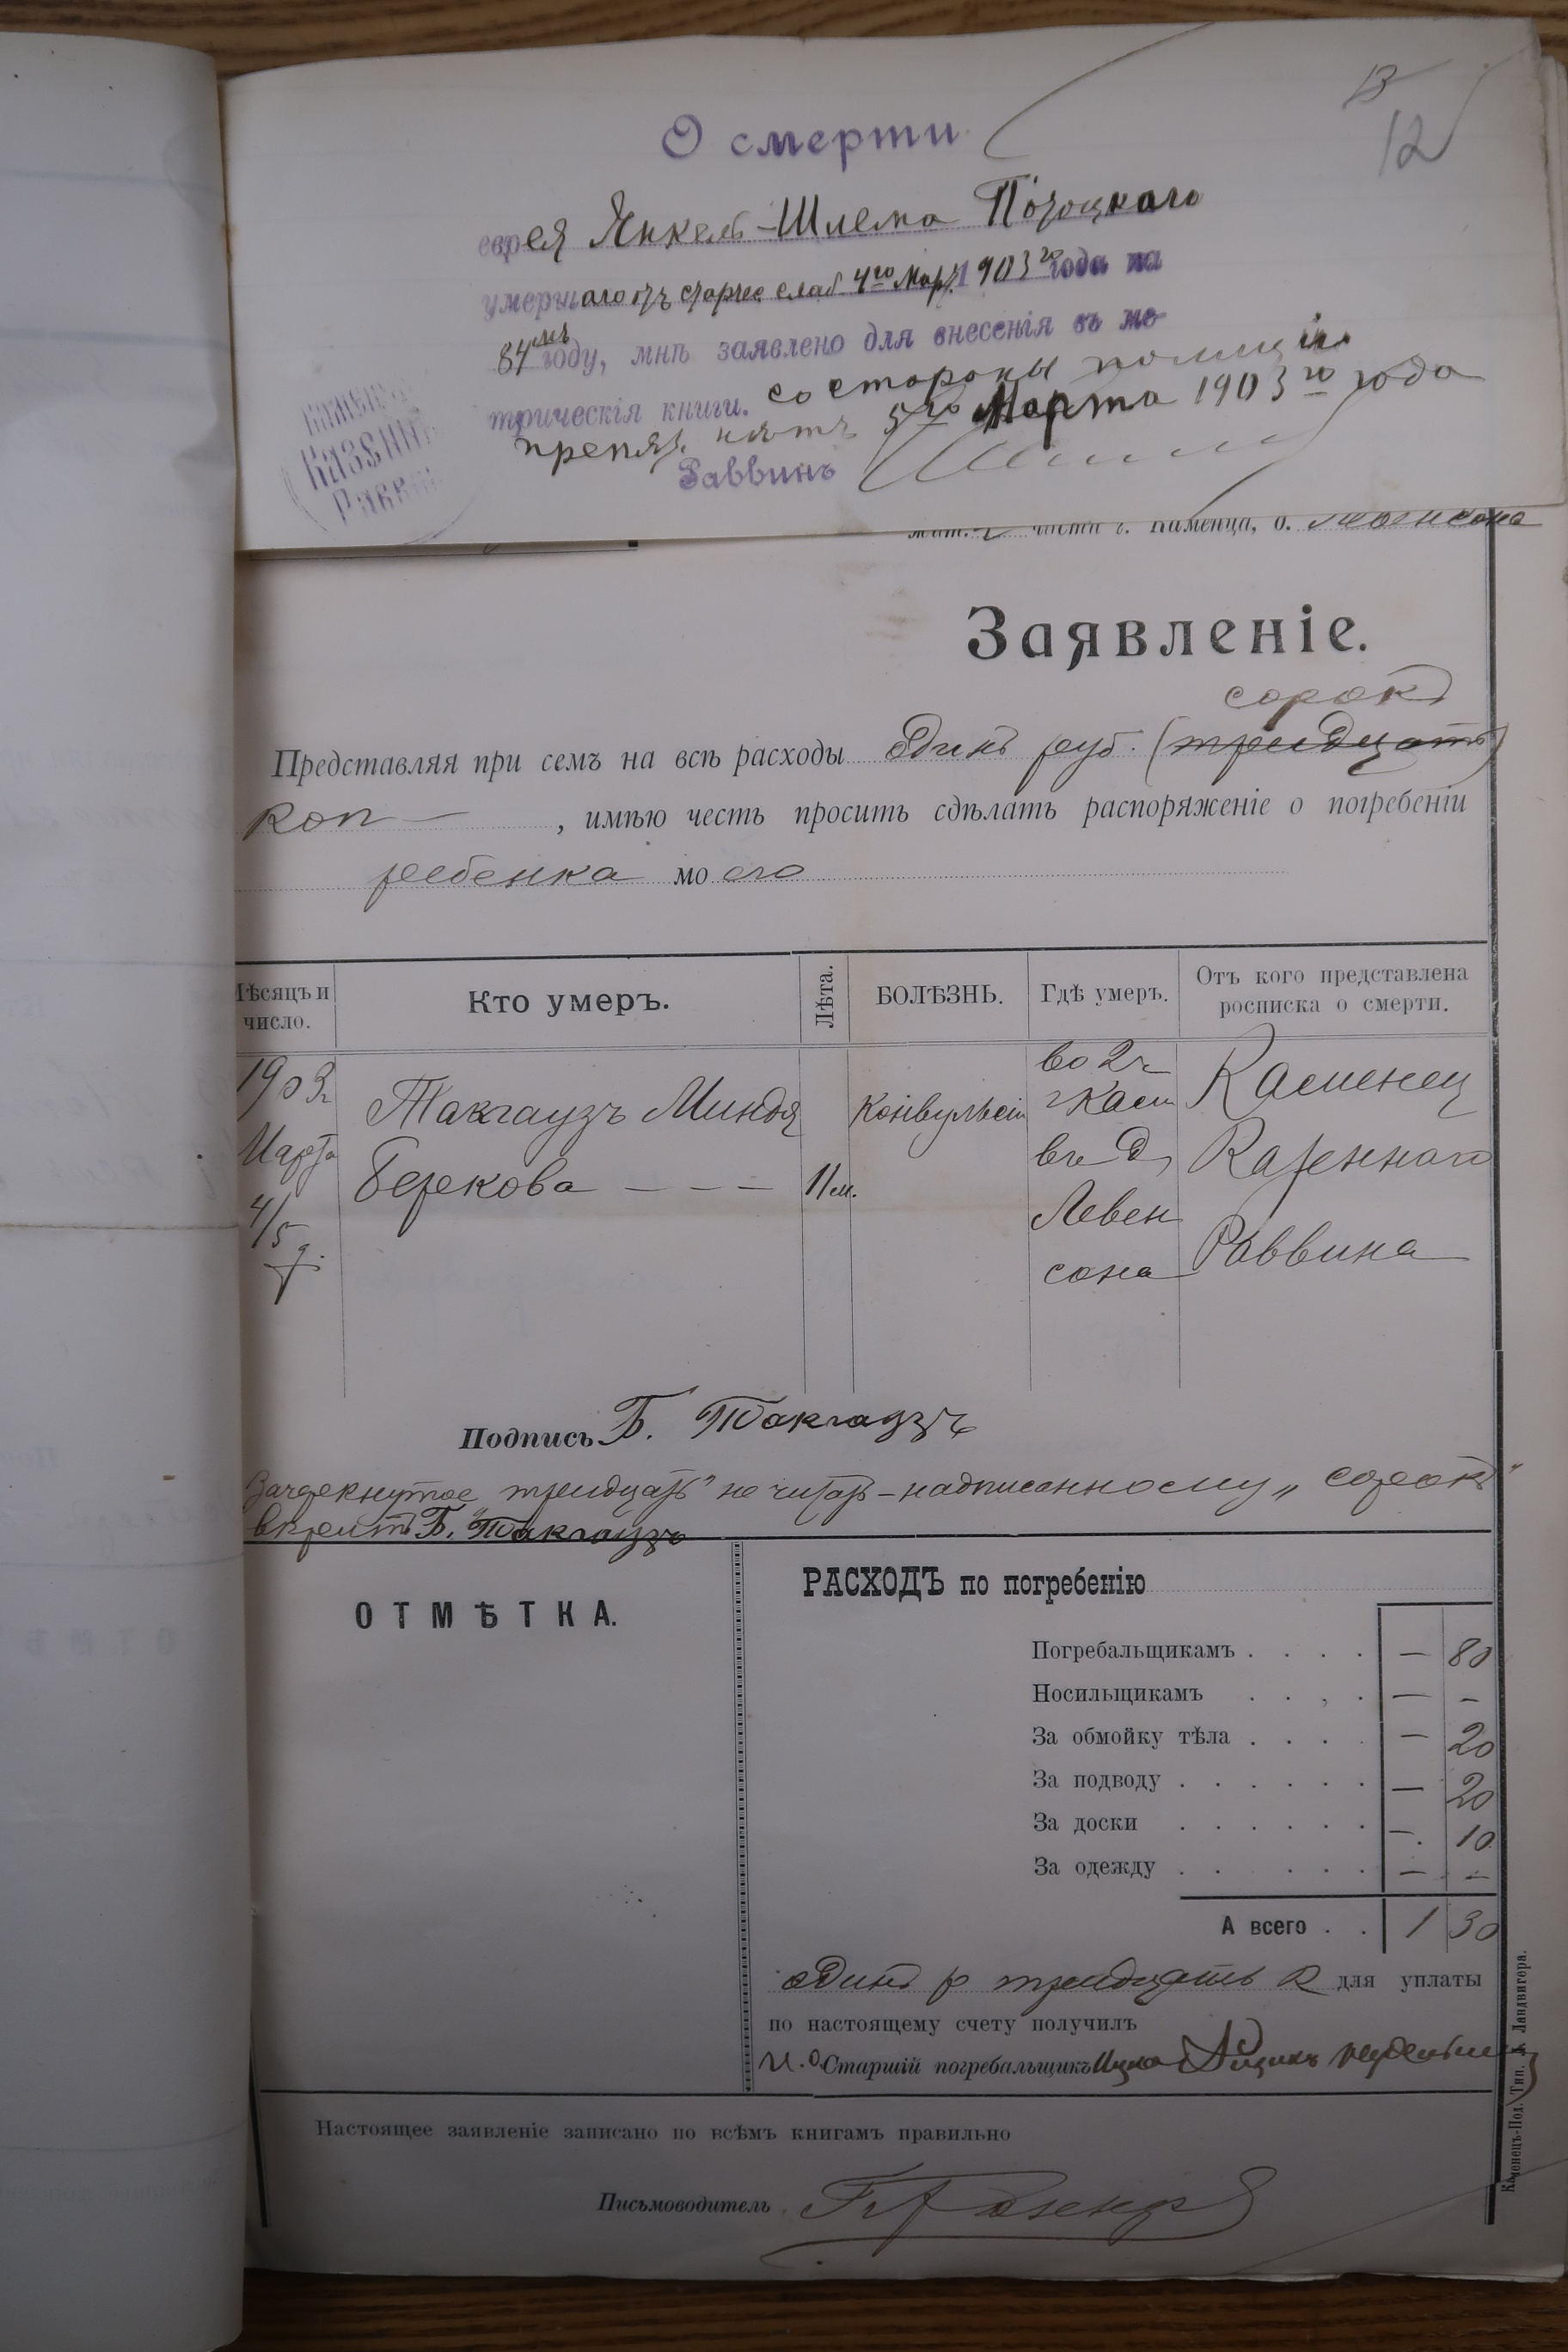 13
12
О смерти
еврея Янкель-Шлема Потоцкаго
умершаго отъ старчес слаб 4го Мар. 1903го года на
84мъ году, мнѣ заявлено для внесенія въ ме-
трическія книги. со стороны полиціи
препят. нѣтъ 5го Марта 1903го года
Раввинъ
Казенн
Равви
части г. Каменца, д. Левенсона
Заявленіе.
сорокъ
Представляя при семъ на всѣ расходы Одинъ руб. (тридцать)
коп — , имѣю честь просить сдѣлать распоряженіе о погребеніи
ребенка моего
Мѣсяцъ и число.
Кто умеръ.
Лѣта.
БОЛѢЗНЬ.
Гдѣ умеръ.
Отъ кого представлена росписка о смерти.
1903г
Марта
4/5
Такгаузъ Миндя
Берекова — — —
11 м.
Конвульсіи
во 2 ч
г Кам
въ д
Левен
сона
Каменец
Казеннаго
Раввина
Подпись Б. Такгаузъ
Зачеркнутое „тридцать" не читать - надписанному „сорокъ"
вѣрить Б. Такгаузъ
ОТМѢТКА.
РАСХОДЪ по погребенію
Погребальщикамъ . . . . — 80
Носильщикамъ . . , . — -
За обмойку тѣла . . . . — 20
За подводу . . . . . . — 20
За доски . . . . . . —. 10
За одежду . . . . . . — -
А всего . . 1 30
Одинъ р тридцать к для уплаты
по настоящему счету получилъ
И.о. Старшій погребальщикъ Ицко
Настоящее заявленіе записано по всѣмъ книгамъ правильно
Письмоводитель
Каменецъ-Под. Тип. Ландвигора.